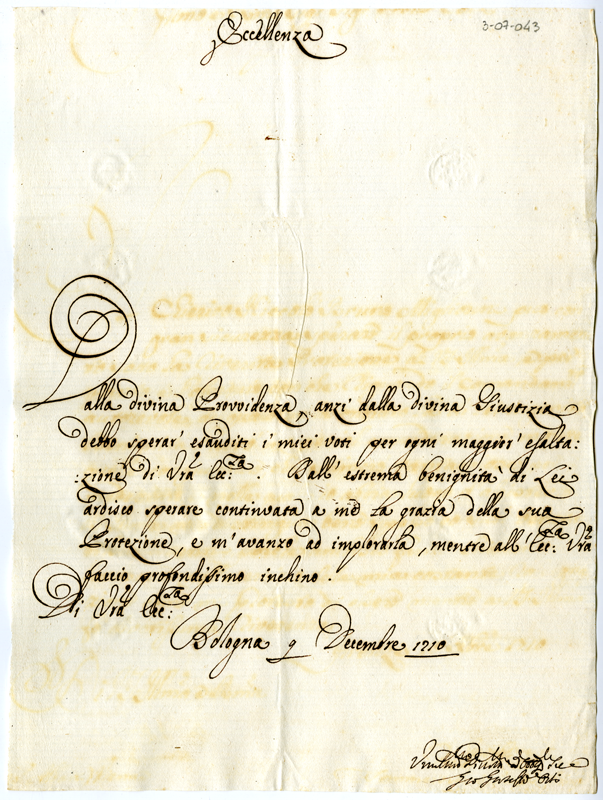 3-07-043
Eccellenza
Dalla divina Provvidenza, anzi dalla divina Giustizia
debbo sperar' esauditi i miei voti per ogni maggior' esalta:
:zione di Vra Ecc:za. Dall' estrema benignità di Lei
ardisco sperare continuata a me la grazia della sua
Protezione, e m'avanzo ad implorarla, mentre all' Ecc:za Vra
faccio profondissimo inchino.
Di Vra Ecc:za
Bologna 9 Decembre 1710
Gio Gioseffo Orsi